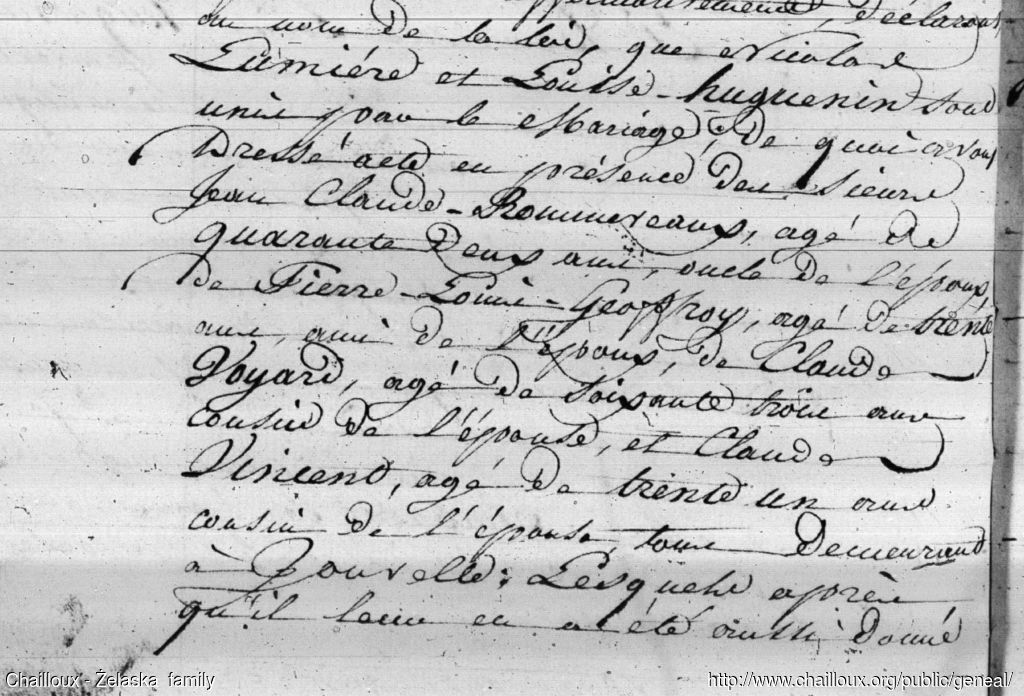 affirmativement, déclarons
au nom de la loi, que Nicolas
Lumiére et Louise-huguenin sont
unis par le Mariage, de quoi avons
Dressé acte en présence des sieurs
Jean Claude-Rommevaux, agé de
quarante Deux ans, oncle de l'époux,
de Pierre Louis-Geoffroy, agé de trente
ans, ami de l'époux, de Claude
Voyard, agé de soixante trois ans
cousin de l'épouse, et Claude
Vincent, agé de trente un ans
cousin de l'épouse, tous Demeurant
à Lesquels après
qu'il leur en a été aussi donné
Chailloux - Želaska family
http://www.chailloux.org/public/geneal/